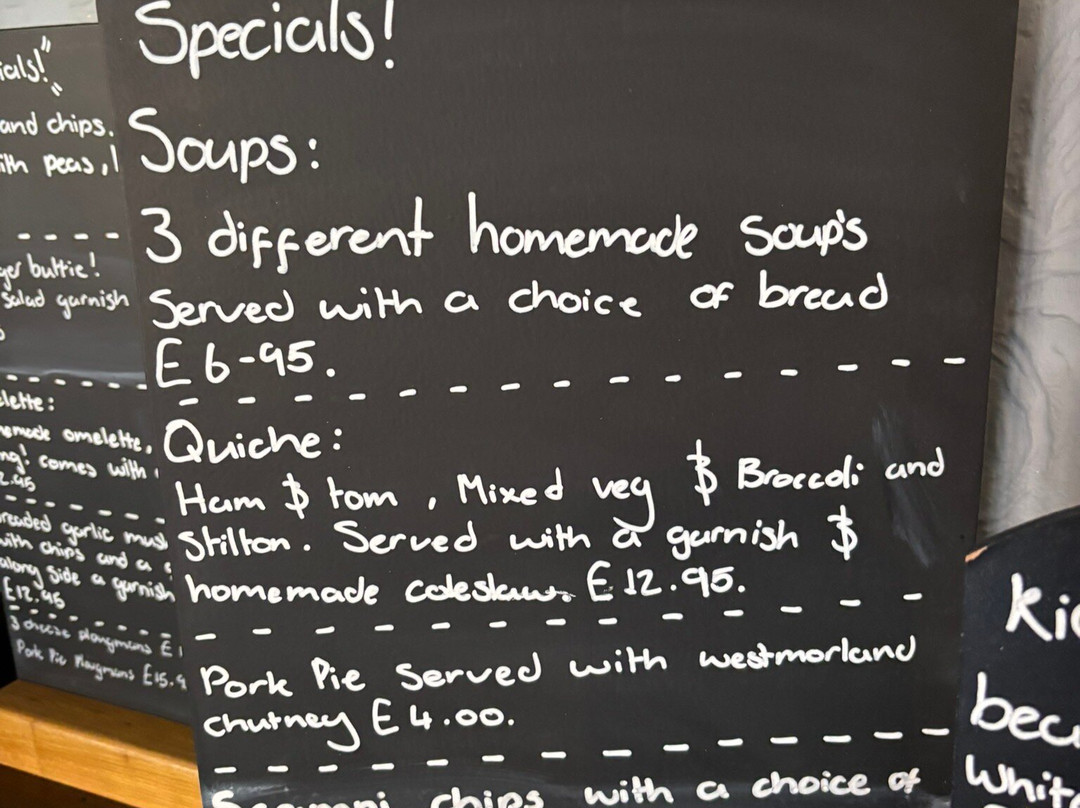 Specials!
Soups:
3 different homemade Soup's
Served with a choice of bread
£6-95.
Quiche:
Ham $ tom, Mixed veg $ Broccoli and
Stilton. Served with a garnish $
homemade coleslaw. £12.95.
Pork Pie Served with westmorland
chutney £4.00.
chips with a choice of
and chips.
peas,
buttie!
Salad garnish
omelette,
comes with
garlic
with chips and a
along side a garnish
£12.95
3 cheese ploughmans £1
Pork Pie Ploughmans £15.9